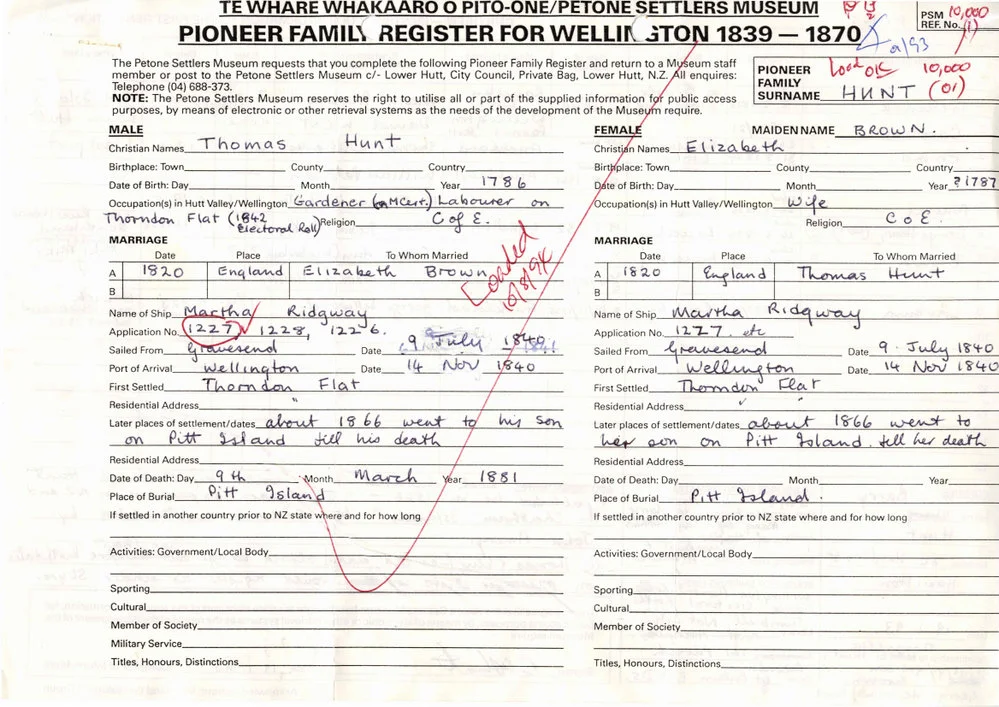 TE WHARE WHAKAARO O PITO-ONE/PETONE SETTLERS MUSEUM
PIONEER FAMILY REGISTER FOR WELLINGTON 1839 — 1870
PSM 10,000
REF. No. (1)
a/93
The Petone Settlers Museum requests that you complete the following Pioneer Family Register and return to a Museum staff
member or post to the Petone Settlers Museum c/- Lower Hutt, City Council, Private Bag, Lower Hutt, N.Z. All enquires:
Telephone (04) 688-373.
NOTE: The Petone Settlers Museum reserves the right to utilise all or part of the supplied information for public access
purposes, by means of electronic or other retrieval systems as the needs of the development of the Museum require.
PIONEER
FAMILY
SURNAME HUNT
Load OK 10,000
(01)
MALE
Christian Names Thomas Hunt
Birthplace: Town County Country
Date of Birth: Day Month Year 1786
Occupation(s) in Hutt Valley/Wellington Gardener (on MCert.) Labourer on
Thorndon Flat (1842 Electoral Roll) Religion C of E.
MARRIAGE
Date Place To Whom Married
A 1820 England Elizabeth Brown
B
Loaded
10/8/94
Name of Ship Martha Ridgway
Application No. 1227, 1228, 1226.
Sailed From Gravesend Date 9 July 1840
Port of Arrival Wellington Date 14 Nov 1840
First Settled Thorndon Flat
Residential Address "
Later places of settlement/dates about 1866 went to his son
on Pitt Island till his death
Residential Address
Date of Death: Day 9th Month March Year 1881
Place of Burial Pitt Island
If settled in another country prior to NZ state where and for how long
Activities: Government/Local Body
Sporting
Cultural
Member of Society
Military Service
Titles, Honours, Distinctions
FEMALE MAIDEN NAME BROWN.
Christian Names Elizabeth
Birthplace: Town County Country
Date of Birth: Day Month Year ?1787
Occupation(s) in Hutt Valley/Wellington Wife
Religion C o E.
MARRIAGE
Date Place To Whom Married
A 1820 England Thomas Hunt
B
Name of Ship Martha Ridgway
Application No. 1277 etc
Sailed From Gravesend Date 9 July 1840
Port of Arrival Wellington Date 14 Nov 1840
First Settled Thorndon Flat
Residential Address
Later places of settlement/dates about 1866 went to
her son on Pitt Island till her death
Residential Address
Date of Death: Day Month Year
Place of Burial Pitt Island.
If settled in another country prior to NZ state where and for how long
Activities: Government/Local Body
Sporting
Cultural
Member of Society
Titles, Honours, Distinctions